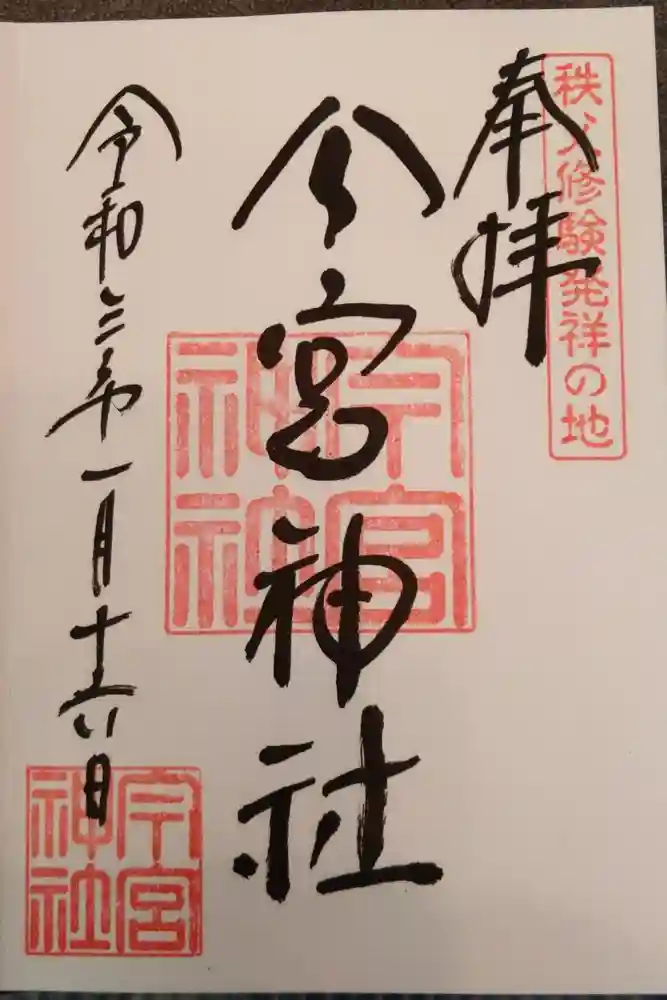 秩父修験発祥の地
奉拝
今宮神社
今宮神社
令和三年一月十六日
今宮神社